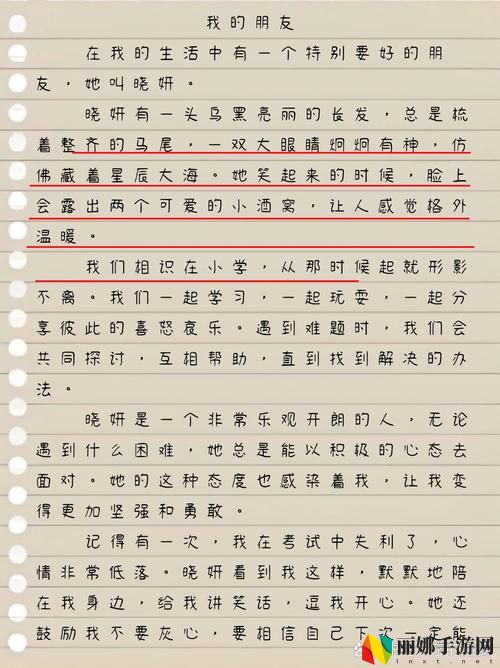 我的朋友
在我的生活中有一个特别要好的朋
友，她叫晓妍。
晓妍有一头乌黑亮丽的长发，总是梳
着整齐的马尾，一双大眼睛炯炯有神，仿
佛藏着星辰大海。她笑起来的时候，脸上
会露出两个可爱的小酒窝，让人感觉格外
温暖。
我们相识在小学，从那时候起就形影
不离。我们一起学习，一起玩耍，一起分
享彼此的喜怒哀乐。遇到难题时，我们会
共同探讨，互相帮助，直到找到解决的办
法。
晓妍是一个非常乐观开朗的人，无论
遇到什么困难，她总是能以积极的心态去
面对。她的这种态度也感染着我，让我变
得更加坚强和勇敢。
记得有一次，我在考试中失利了，心
情非常低落。晓妍看到我这样，默默地陪
在我身边，给我讲笑话，逗我开心。她还
鼓励我不要灰心，要相信自己下次一定能
丽娜手游网
lnxt.net